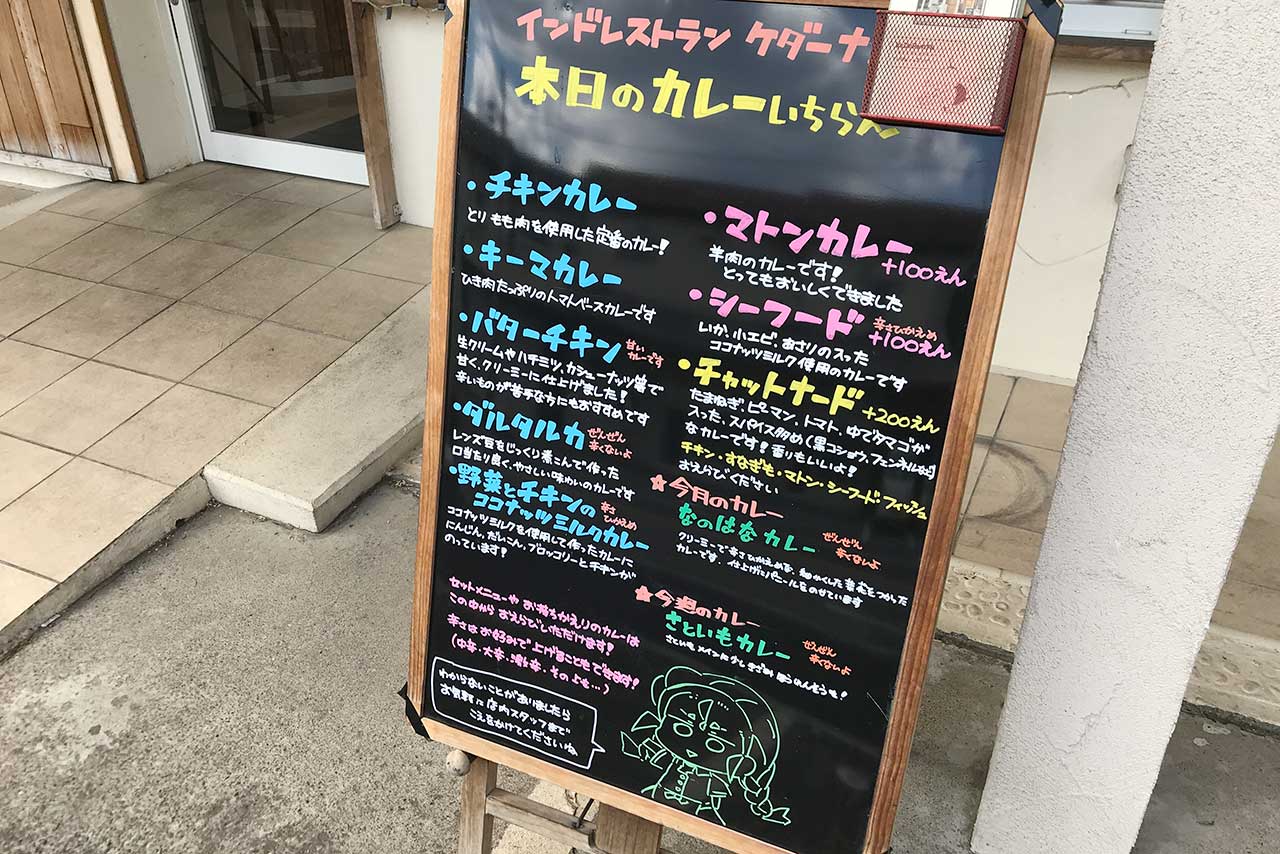 インドレストラン ケダーナ
本日のカレーいちらん
・チキンカレー
とりもも肉を使用した定番のカレー!
・キーマカレー
ひき肉たっぷりのトマトベースカレーです
・バターチキン 甘い
カレーです
生クリームやハチミツ、カシューナッツ等で
甘く、クリーミーに仕上げました!
辛いものが苦手な方にもおすすめです
・ダルタルカ ぜんぜん
辛くないよ
レンズ豆をじっくり煮こんで作った
口当たり良く、やさしい味わいのカレーです
・野菜とチキンの 辛さ
ひかえめ
ココナッツミルクカレー
ココナッツミルクを使用して作ったカレーに
にんじん、だいこん、ブロッコリーとチキンが
のっています!
セットメニューや お持ちかえりのカレーは
この中から おえらびいただけます!
辛さは お好みで 上げることもできます!
(中辛・大辛・激辛・そのよも…)
わからないことがありましたら
お気軽に店内スタッフまで
こえをかけてくださいね
・マトンカレー
+100えん
羊肉のカレーです!
とってもおいしくできました
・シーフード 辛さひかえめ
+100えん
いか、小エビ、あさりの入った
ココナッツミルク使用のカレーです
・チャットナード +200えん
たまねぎ、ピーマン、トマト、ゆでタマゴが
入った、スパイス多め(黒コショウ、フェンネルなど)
なカレーです!香りもいいよ!
チキン・すなぎも・マトン・シーフード・フィッシュ
おえらびください
★今月のカレー
なのはなカレー ぜんぜん
辛くないよ
クリーミーで辛さひかえめな、細かくした菜花をつかった
カレーです、仕上げにパニールをのせています
★今週のカレー
さといもカレー ぜんぜん
辛くないよ
さといもメインに少しきざみほうれんそうも!